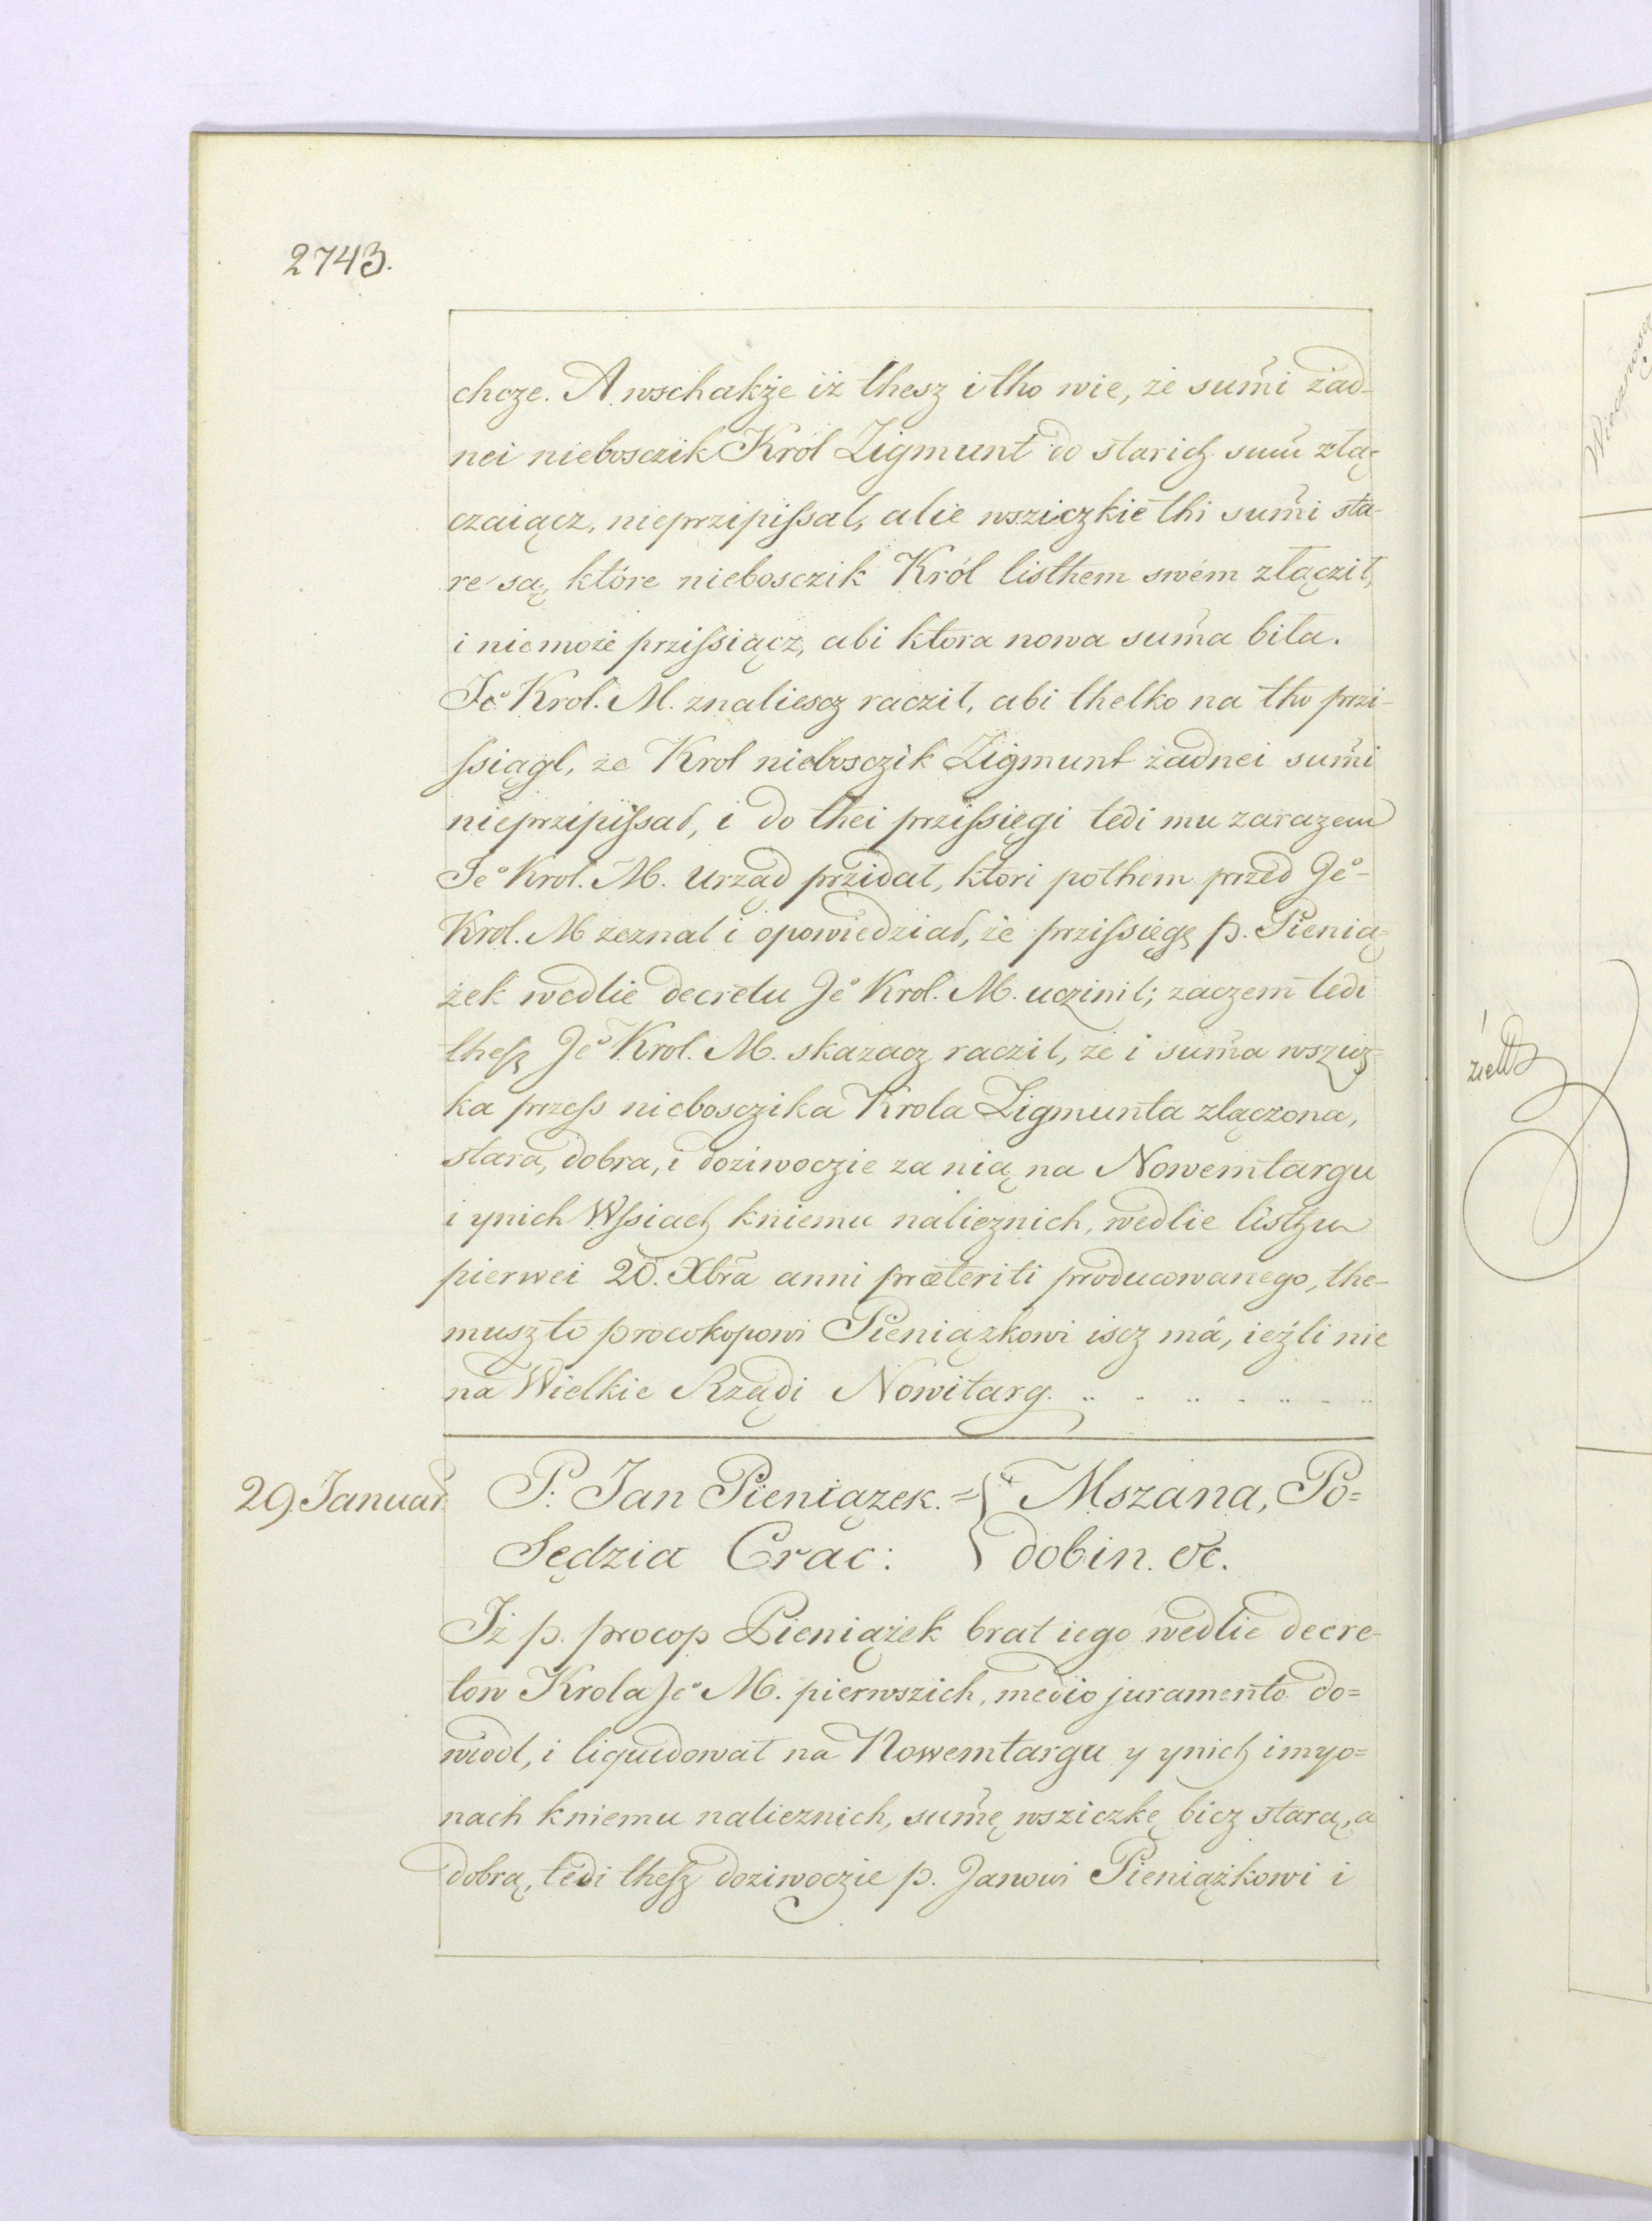 2743.
chcze. A wschakże iż thesz i tho wie, że sum̃i żad-
nei niebosczik Król Zigmunt do starich sum̃ złą-
czaiącz, nieprzipiſsał, alie wsziczkie thi sum̃i sta-
re są, które niebosczik Król listhem swém złącził,
i niemoże prziſsiącz, abi ktora nowa sum̃a biła.
Jeº Krol. M. znaliescz racził, abi thelko na tho przi-
ſsiągł, że Krol niebosczik Zigmunt żadnei sum̃i
nieprzipiſsał, i do thei prziſsięgi tedi mu zarazem
Jeº Krol. M. Urząd przidał, ktori pothem przed Jeº
Krol. M zeznał i opowiedział, że prziſsięgę p. Pienią-
żek wedlie decretu Jeº Krol. M. uczinił; zaczem tedi
theſz Jeº Krol. M. skazacz racził, że i sum̃a wszicz-
ka przeſs niebosczika Krola Zigmunta złączona,
stara, dobra, i doziwoczie za nią na Nowemtargu
i ynich Wſsiach kniemu należnich, wedlie listhu
pierwei 20. Xbra anni præteriti producowanego, the-
musz to procokopowi Pieniążkowi iscz má, ieźli nie
na Wielkie Rządi Nowitarg. .. . .. . .. . ..
29. Januar P. Jan Pieniązek. = { Mszana, Po=
Sędzia Crac: dobin. &c.
Iż p. procop Pieniążek brat iego wedlie decre-
tow Krola Jeº M. pierwszich, medio juramento do=
wiodł, i liquidował na Nowemtargu y ynich imyo=
nach kniemu należnich, sum̃ę wsziczkę bicz starą, a
dobrą, tedi theſz doziwoczie p. Janowi Pieniążkowi i